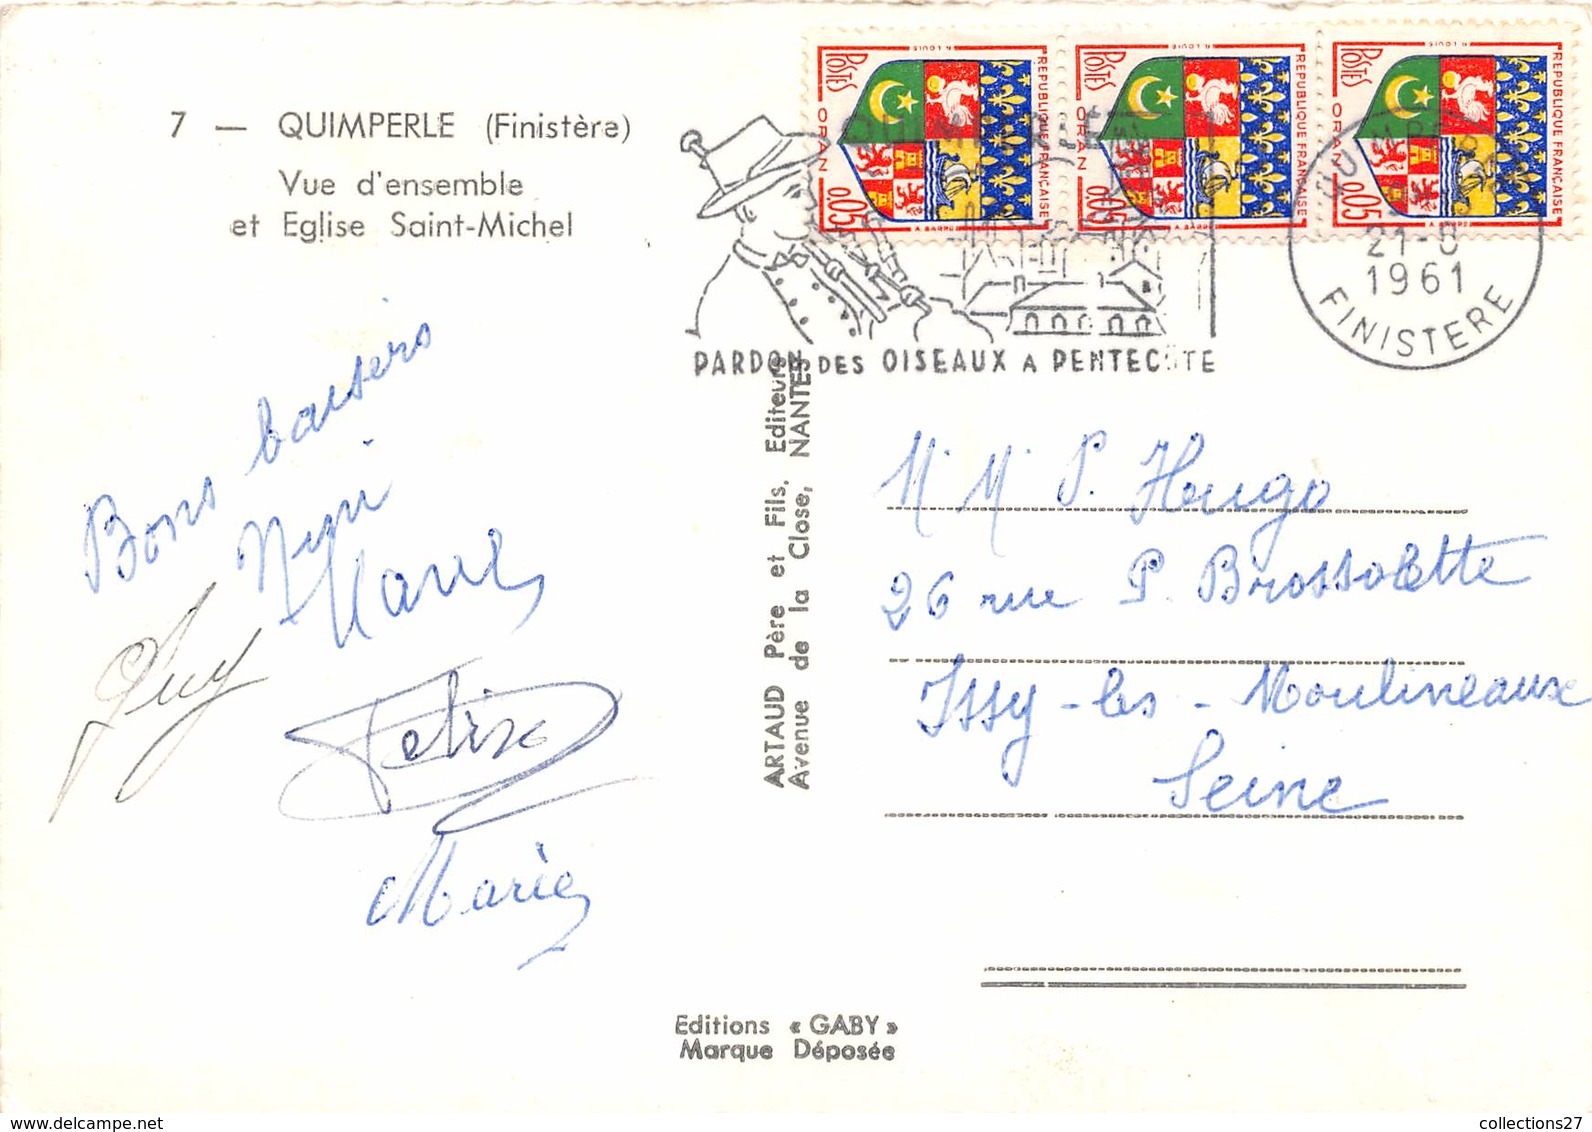 7 — QUIMPERLE (Finistère)
Vue d'ensemble
et Eglise Saint-Michel
POSTES
ORAN
0.05
REPUBLIQUE FRANÇAISE
R. LOUIS
A. BARRE
POSTES
ORAN
0.05
REPUBLIQUE FRANÇAISE
R. LOUIS
A. BARRE
POSTES
ORAN
0.05
REPUBLIQUE FRANÇAISE
R. LOUIS
A. BARRE
QUIMPERLE
PARDON DES OISEAUX A PENTECÔTE
QUIMPERLE
21-8
1961
FINISTERE
Bons baisers
Guy
Felix
Marie
ARTAUD Père et Fils, Editeurs
Avenue de la Close, NANTES
M. M P. Hugo
26 rue P. Brossolette
Issy-les-Moulineaux
Seine
Editions « GABY »
Marque Déposée
collections27